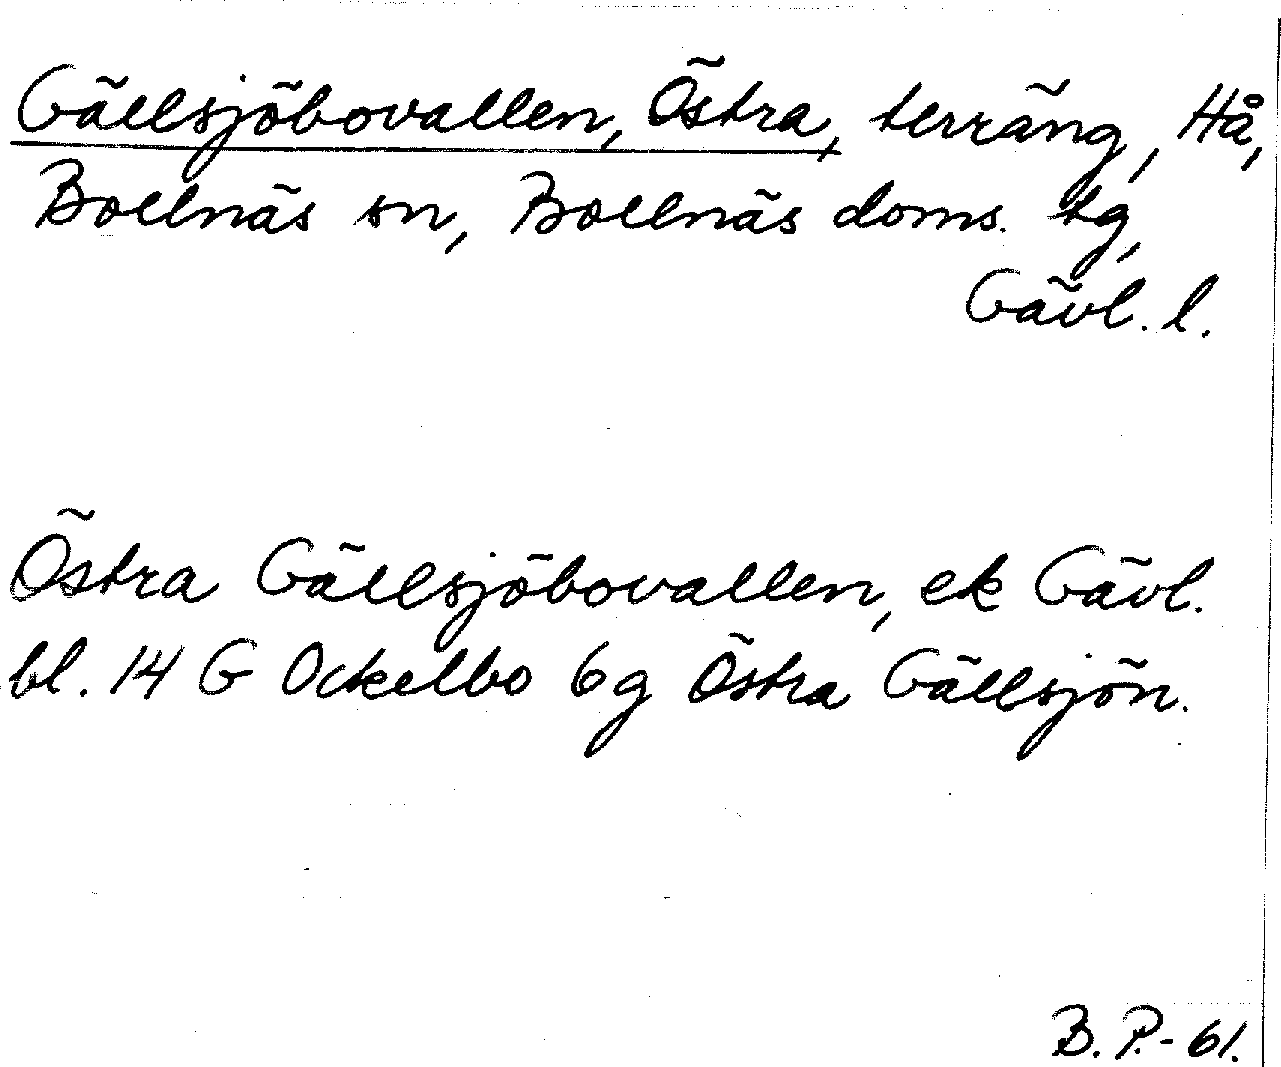 Gällsjöbovallen, Östra, terräng, Hå,
Bollnäs sn, Bollnäs doms. tg,
Gävl. l.
Östra Gällsjöbovallen, ek Gävl.
bl. 14 G Ockelbo 6g Östra Gällsjön.
B. P.-61.